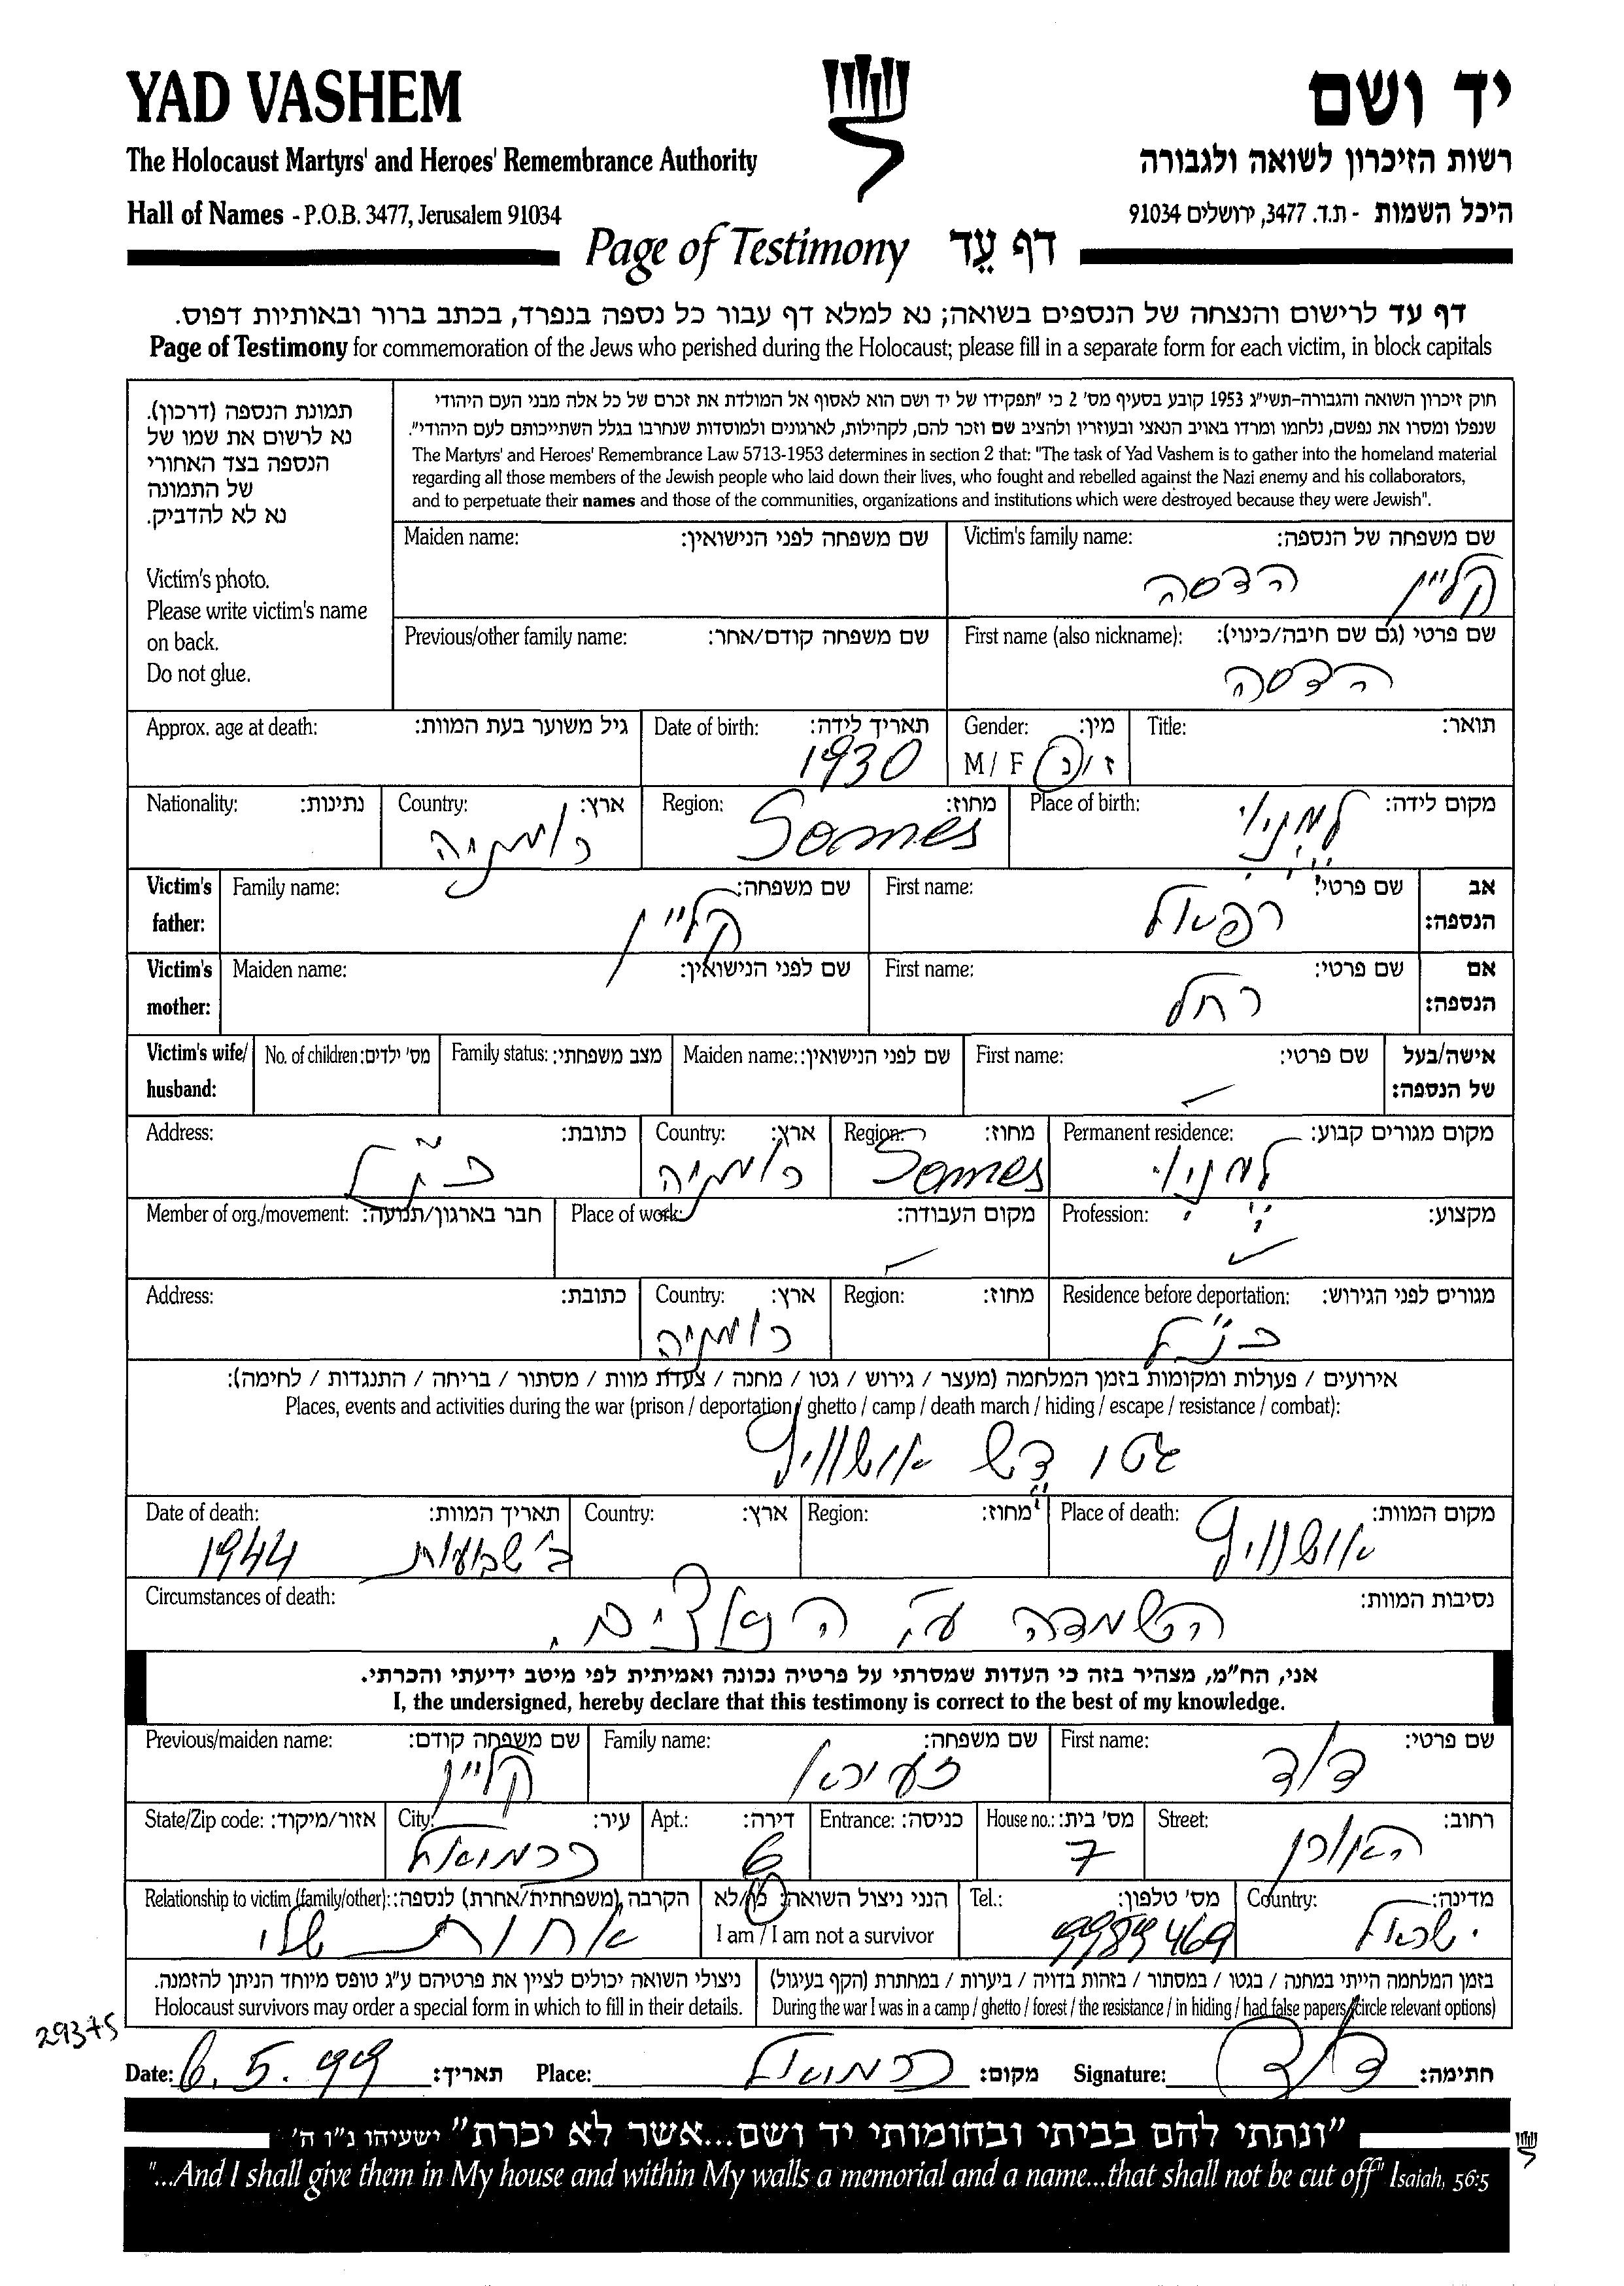 YAD VASHEM
יד ושם
The Holocaust Martyrs' and Heroes' Remembrance Authority
רשות הזיכרון לשואה ולגבורה
Hall of Names - P.O.B. 3477, Jerusalem 91034
היכל השמות - ת.ד. 3477, ירושלים 91034
Page of Testimony דף עֵד
דף עד לרישום והנצחה של הנספים בשואה; נא למלא דף עבור כל נספה בנפרד, בכתב ברור ובאותיות דפוס.
Page of Testimony for commemoration of the Jews who perished during the Holocaust; please fill in a separate form for each victim, in block capitals
תמונת הנספה (דרכון).
נא לרשום את שמו של
הנספה בצד האחורי
של התמונה
נא לא להדביק.
Victim's photo.
Please write victim's name
on back.
Do not glue.
חוק זיכרון השואה והגבורה-תשי״ג 1953 קובע בסעיף מס' 2 כי "תפקידו של יד ושם הוא לאסוף אל המולדת את זכרם של כל אלה מבני העם היהודי
שנפלו ומסרו את נפשם, נלחמו ומרדו באויב הנאצי ובעוזריו ולהציב שם וזכר להם, לקהילות, לארגונים ולמוסדות שנחרבו בגלל השתייכותם לעם היהודי".
The Martyrs' and Heroes' Remembrance Law 5713-1953 determines in section 2 that: "The task of Yad Vashem is to gather into the homeland material
regarding all those members of the Jewish people who laid down their lives, who fought and rebelled against the Nazi enemy and his collaborators,
and to perpetuate their names and those of the communities, organizations and institutions which were destroyed because they were Jewish".
Victim's family name: שם משפחה של הנספה:
קליין הדסה
Maiden name: שם משפחה לפני הנישואין:
First name (also nickname): שם פרטי (גם שם חיבה/כינוי):
הדסה
Previous/other family name: שם משפחה קודם/אחר:
Title: תואר:
Gender: מין:
M / F ז / נ
Date of birth: תאריך לידה:
1930
Approx. age at death: גיל משוער בעת המוות:
Place of birth: מקום לידה:
Region: מחוז:
Somes
Country: ארץ:
רומניה
Nationality: נתינות:
Victim's father: אב הנספה:
First name: שם פרטי:
רפאל
Family name: שם משפחה:
קליין
Victim's mother: אם הנספה:
First name: שם פרטי:
רחל
Maiden name: שם לפני הנישואין:
Victim's wife/ husband: אישה/בעל של הנספה:
First name: שם פרטי:
Maiden name: שם לפני הנישואין:
Family status: מצב משפחתי:
No. of children: מס' ילדים:
Permanent residence: מקום מגורים קבוע:
Region: מחוז:
Somes
Country: ארץ:
רומניה
Address: כתובת:
כנ"ל
Profession: מקצוע:
Place of work: מקום העבודה:
Member of org./movement: חבר בארגון/תנועה:
Residence before deportation: מגורים לפני הגירוש:
כנ"ל
Region: מחוז:
Country: ארץ:
רומניה
Address: כתובת:
אירועים / פעולות ומקומות בזמן המלחמה (מעצר / גירוש / גטו / מחנה / צעדת מוות / מסתור / בריחה / התנגדות / לחימה):
Places, events and activities during the war (prison / deportation / ghetto / camp / death march / hiding / escape / resistance / combat):
גטו דעש אושוויץ
Place of death: מקום המוות:
אושוויץ
Region: מחוז:
Country: ארץ:
Date of death: תאריך המוות:
ב' שבועות 1944
Circumstances of death: נסיבות המוות:
השמדה ע"י הנאצים.
אני, הח״מ, מצהיר בזה כי העדות שמסרתי על פרטיה נכונה ואמיתית לפי מיטב ידיעתי והכרתי.
I, the undersigned, hereby declare that this testimony is correct to the best of my knowledge.
First name: שם פרטי:
דוד
Family name: שם משפחה:
זעירא
Previous/maiden name: שם משפחה קודם:
קליין
Street: רחוב:
האורן
House no.: מס' בית:
7
Entrance: כניסה:
Apt.: דירה:
6
City: עיר:
כרמיאל
State/Zip code: אזור/מיקוד:
Country: מדינה:
ישראל
Tel.: מס' טלפון:
9989469
הנני ניצול השואה: כן/לא
I am / I am not a survivor
Relationship to victim (family/other): הקרבה (משפחתית/אחרת) לנספה:
אחות שלי
בזמן המלחמה הייתי במחנה / בגטו / במסתור / בזהות בדויה / ביערות / במחתרת (הקף בעיגול)
During the war I was in a camp / ghetto / forest / the resistance / in hiding / had false papers (circle relevant options)
ניצולי השואה יכולים לציין את פרטיהם ע״ג טופס מיוחד הניתן להזמנה.
Holocaust survivors may order a special form in which to fill in their details.
29375
Date: 6.5.99 תאריך:
Place: כרמיאל מקום:
Signature: דוד חתימה:
"ונתתי להם בביתי ובחומותי יד ושם...אשר לא יכרת" ישעיהו נ״ו ה'
"...And I shall give them in My house and within My walls a memorial and a name...that shall not be cut off" Isaiah, 56:5